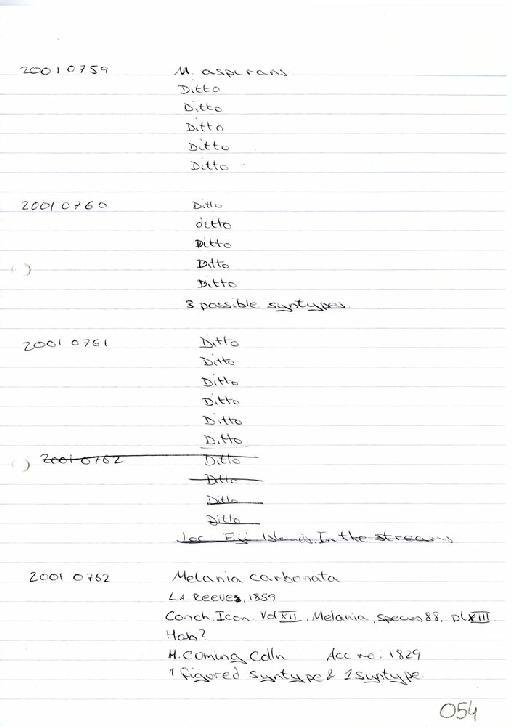 20010759 M. asperans
Ditto
Ditto
Ditto
Ditto
Ditto
20010760 Ditto
ditto
Ditto
Ditto
Ditto
3 possible syntypes.
20010761 Ditto
Ditto
Ditto
Ditto
Ditto
Ditto
20010762 Ditto
Ditto
Ditto
Ditto
Loc Fiji Islands, In the streams
20010762 Melania carbonata
LA Reeves, 1859
Conch. Icon. Vol XII, Melania, species 88, pl. XIII
Hab?
H. Coming Colln Acc no. 1829
1 figored syntype & 2 syntype
054